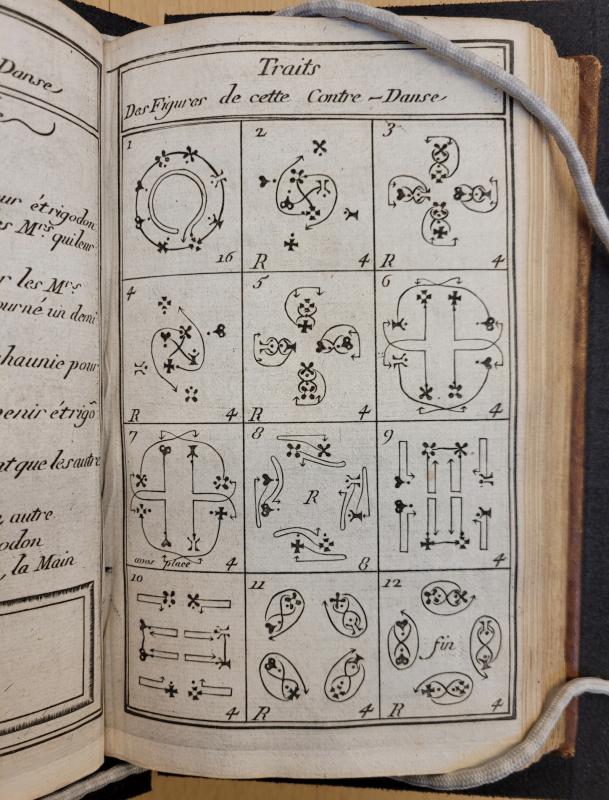 Danse
ur étrigodon
les Mrs. qui leur
r les Mrs
ourné un demi
chaunie pour
venir étrigo
nt que les autre
autre
odon
la Main
Traits
Des Figures de cette Contre-Danse
1
16
2
R 4
3
R 4
4
R 4
5
R 4
6
4
7
a nos place 4
8
R
8
9
4
10
4
11
R 4
12
fin
R 4